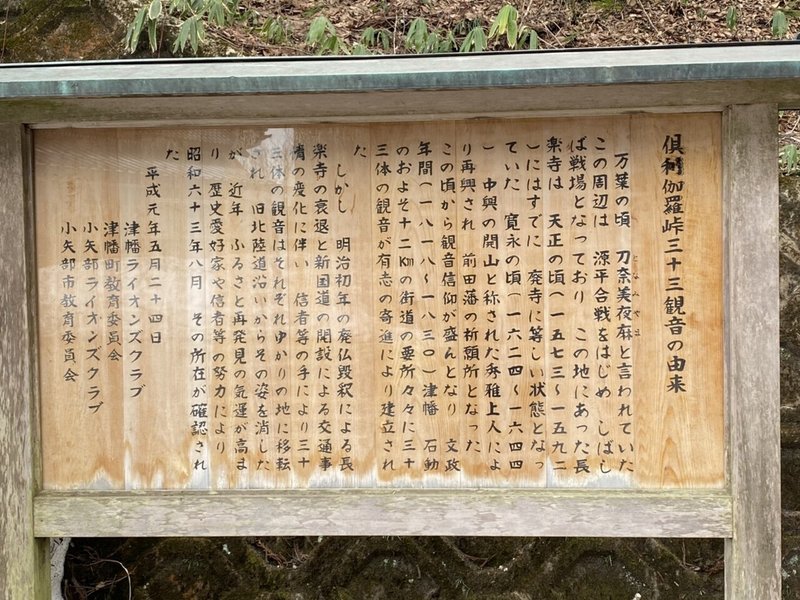 俱利伽羅峠三十三観音の由来
万葉の頃 刀奈美夜麻と言われていた
となみやま
この周辺は 源平合戦をはじめ しばし
ば戦場となっており この地にあった長
楽寺は 天正の頃(一五七三〜一五九二
)にはすでに 廃寺に等しい状態となっ
ていた 寛永の頃(一六二四〜一六四四
) 中興の開山と称された秀雅上人によ
り再興され 前田藩の祈願所となった
この頃から観音信仰が盛んとなり 文政
年間(一八一八〜一八三〇)津幡 石動
のおよそ十二Kmの街道の要所々々に三十
三体の観音が有志の寄進により建立され
た
しかし 明治初年の廃仏毀釈による長
楽寺の衰退と新国道の開設による交通事
情の変化に伴い 信者等の手により三十
三体の観音はそれぞれゆかりの地に移転
され 旧北陸道沿いからその姿を消した
が 近年 ふるさと再発見の気運が高ま
り 歴史愛好家や信者等の努力により
昭和六十三年八月 その所在が確認され
た
平成元年五月二十四日
津幡ライオンズクラブ
津幡町教育委員会
小矢部ライオンズクラブ
小矢部市教育委員会